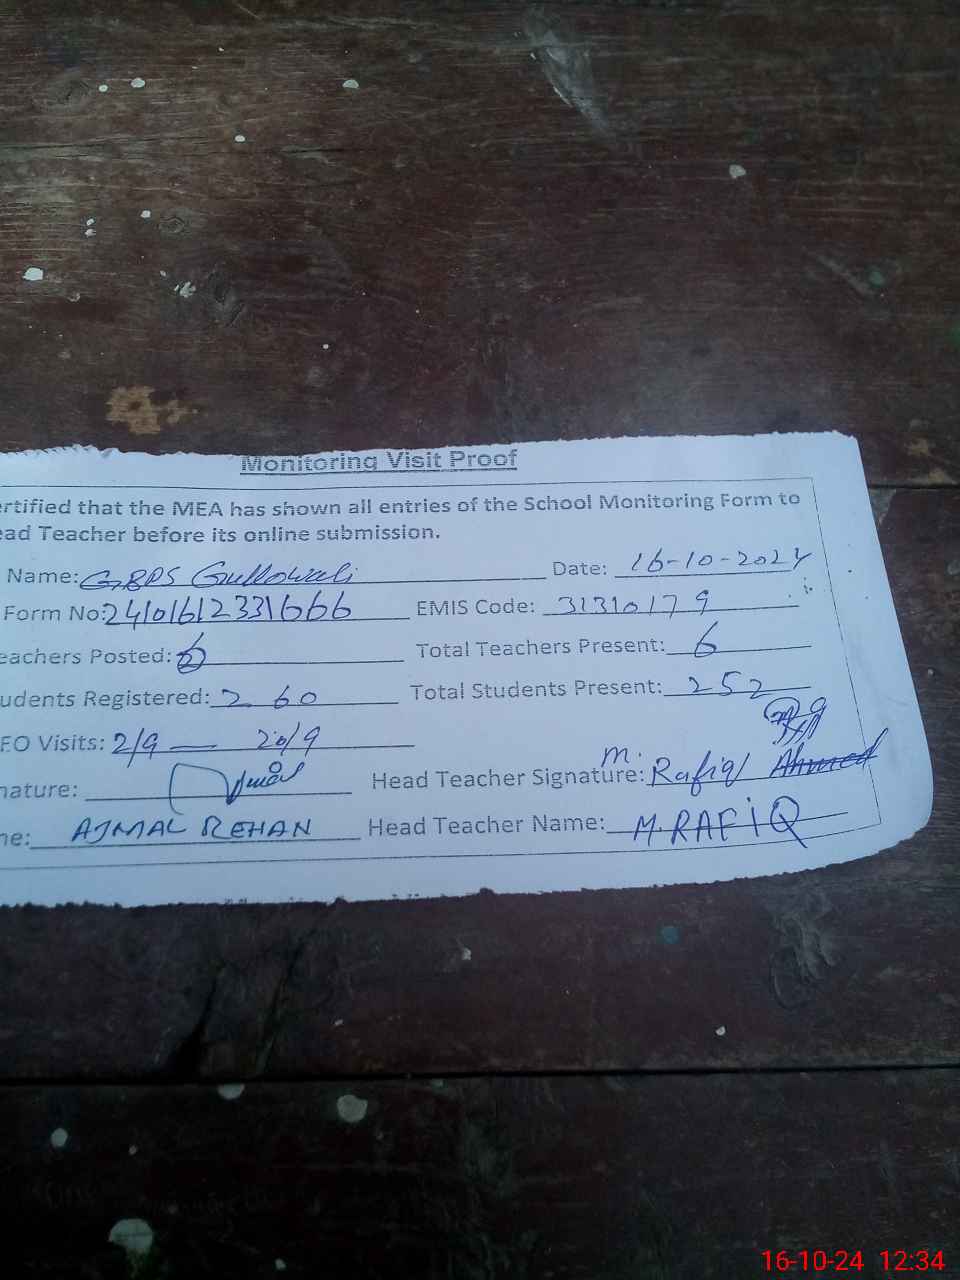 Monitoring Visit Proof
ertified that the MEA has shown all entries of the School Monitoring Form to
ead Teacher before its online submission.
Name: GBPS Gullowali Date: 16-10-2024
Form No: 24101612331666 EMIS Code: 31310179
eachers Posted: 6 Total Teachers Present: 6
udents Registered: 260 Total Students Present: 252
EO Visits: 2/9 — 20/9
nature: Head Teacher Signature: M. Rafiq Ahmed
ne: AJMAL REHAN Head Teacher Name: M.RAFIQ
16-10-24 12:34